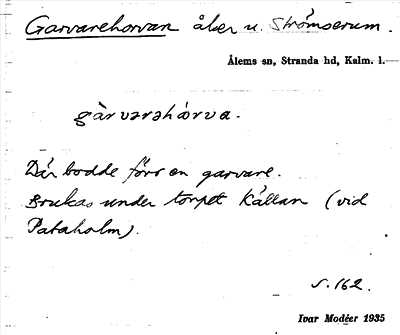 Garvarehorvan åker u. Strömserum.
Ålems sn, Stranda hd, Kalm. l.
gàrvarəhórva.
Där bodde förr en garvare.
Brukas under torpet Källan (vid
Pataholm).
s. 162.
Ivar Modéer 1935